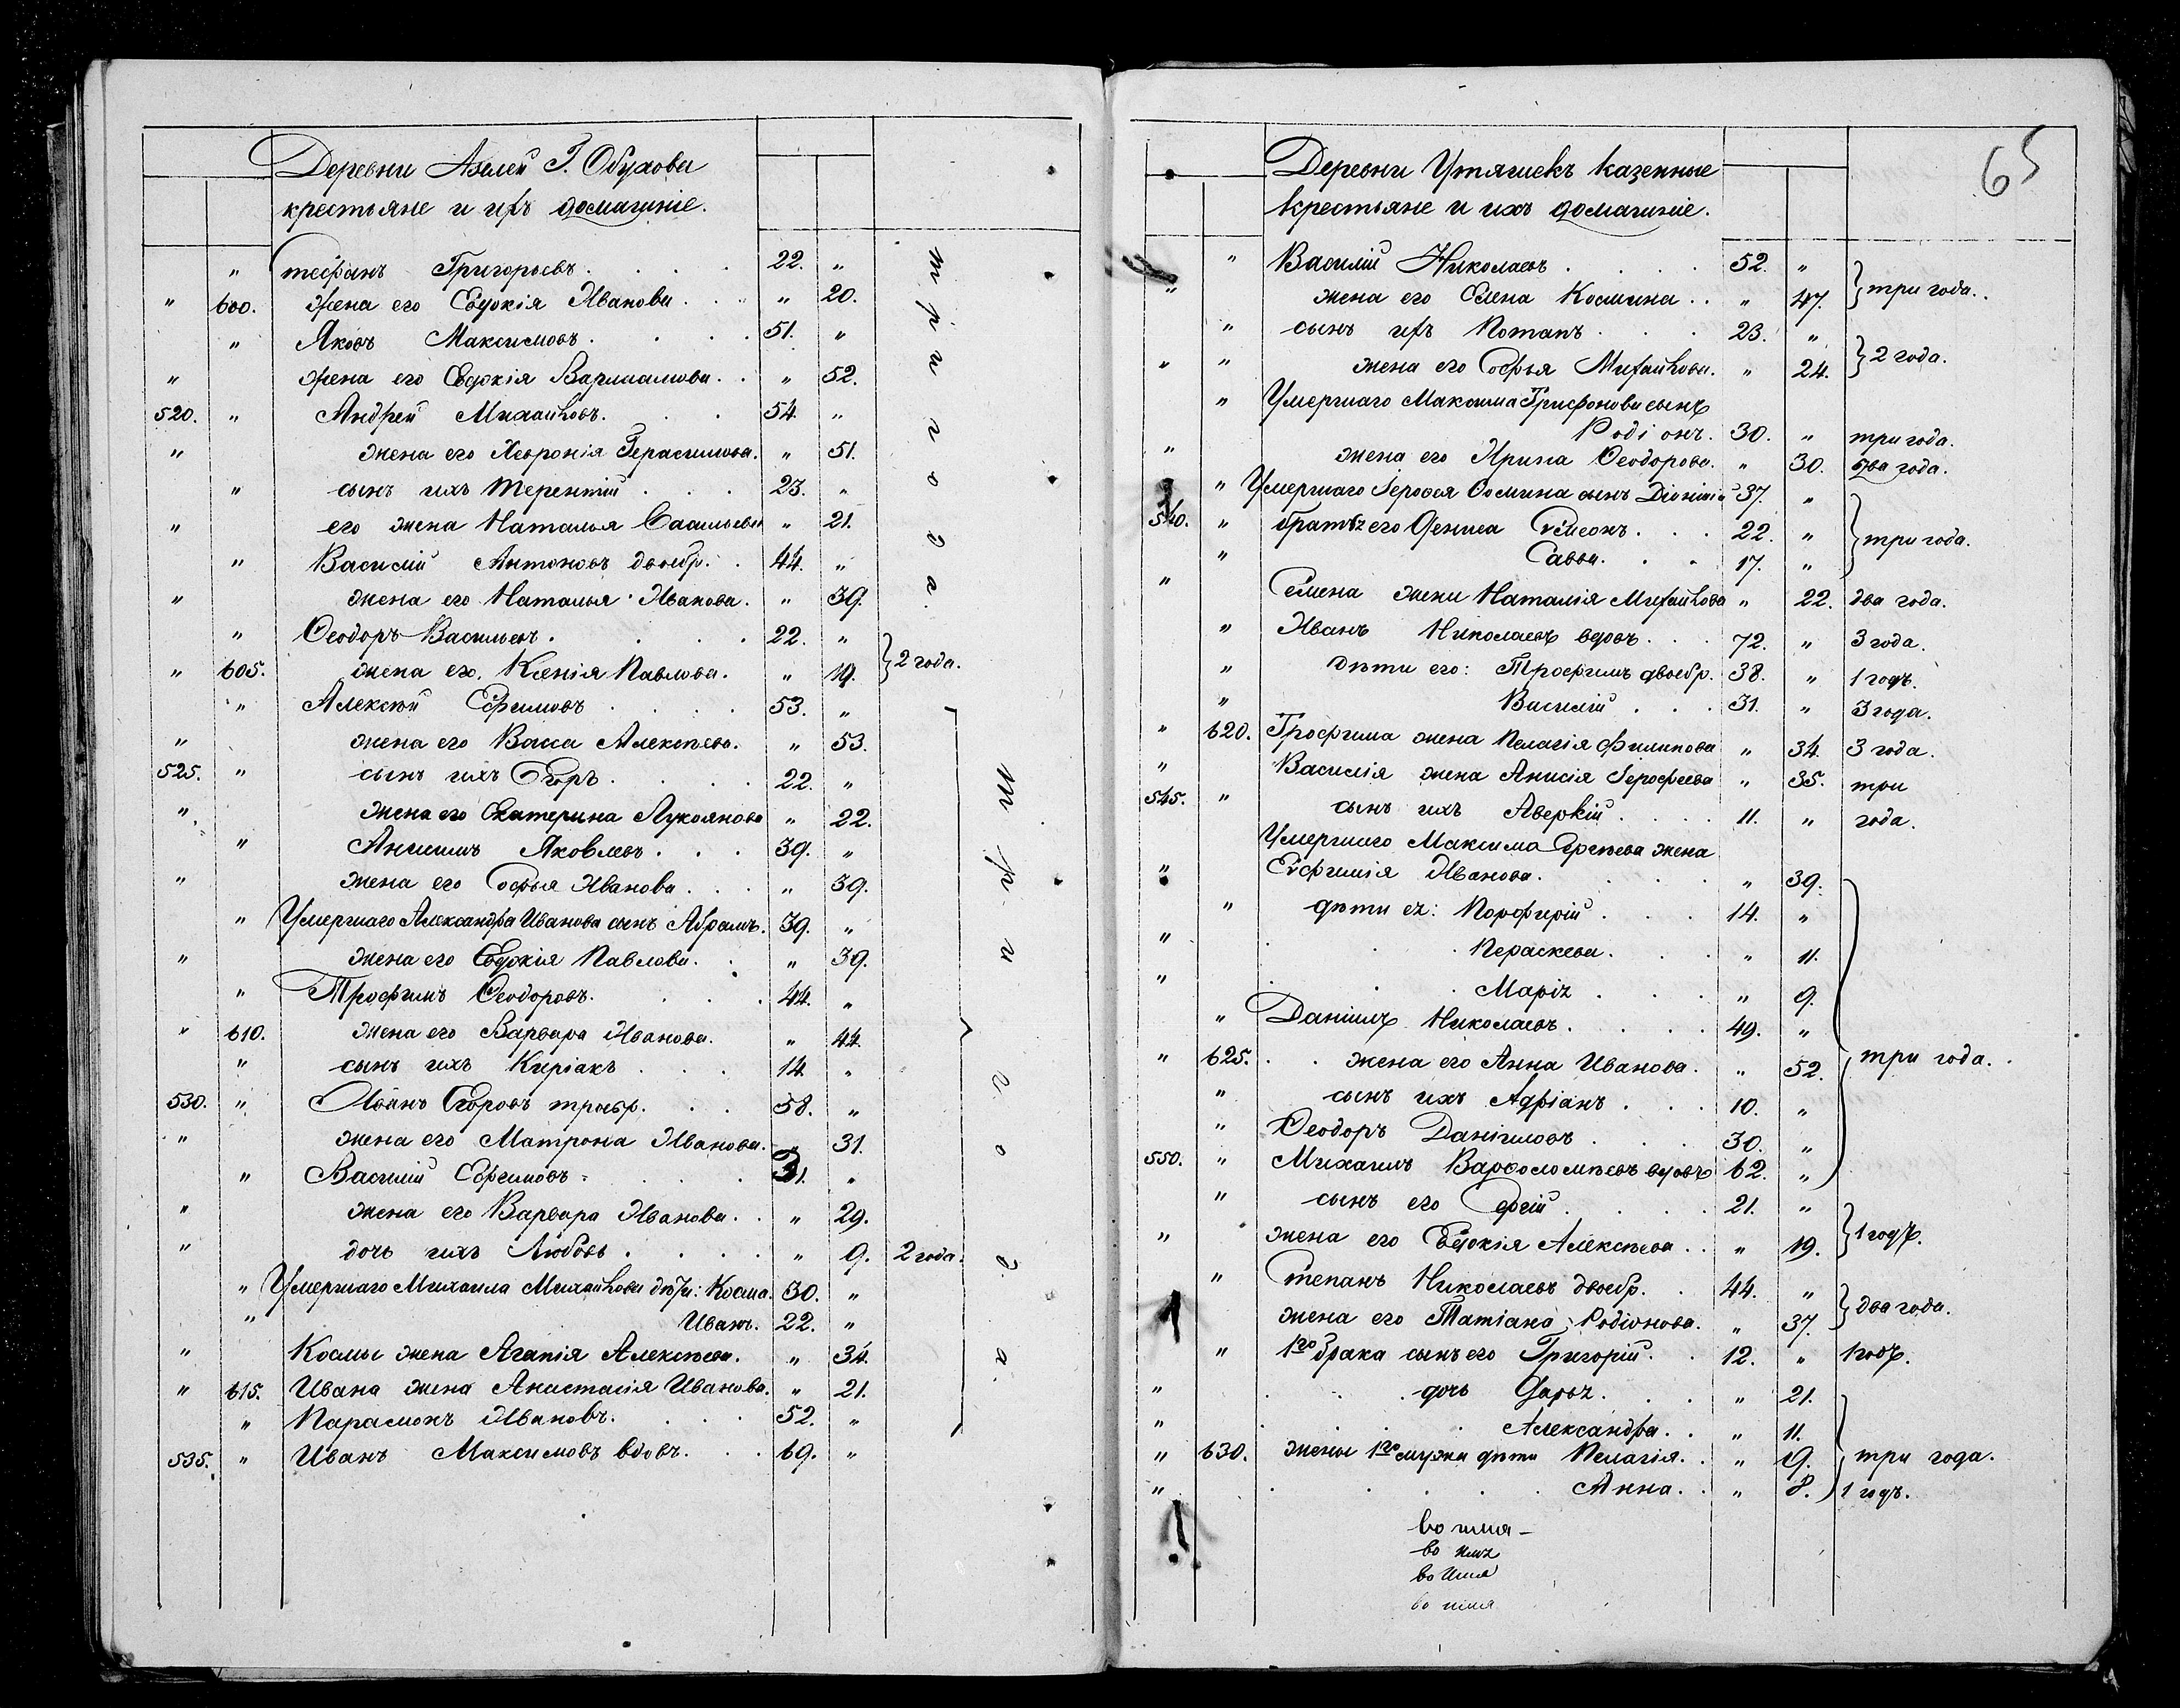 Деревни Г. Обухова
крестьяне и ихъ домашніе.
" Стефанъ Григорьевъ. 22. "
" 600. Жена его Евдокія Иванова " 20.
" Яковъ Максимовъ. 51. "
" жена его Евдокія Варламова. " 52.
520. " Андрей Михайловъ. 54. "
" жена его Герасимова. " 51.
" сынъ ихъ Терентій 23. "
" его жена Наталья " 21.
" Василій Антоновъ двоебр. 44. "
" жена его Наталья Иванова. " 39.
три года.
" Ѳеодоръ Васильевъ. 22. "
" 605. жена его Ксенія Павлова. " 19. 2 года.
" Алексѣй Ефимовъ 53. "
" жена его Васса Алексѣева. " 53.
525. " сынъ ихъ Егоръ 22. "
" жена его Екатерина Лукоянова " 22.
" Анисимъ Яковлевъ. 39. "
" жена его Софья Иванова. " 39.
" Умершаго Александра Иванова сынъ Абрамъ. 39. "
" жена его Евдокія Павлова. " 39.
" Трофимъ Ѳеодоровъ. 44. "
" 610. жена его Варвара Иванова. " 44.
" сынъ ихъ Киріакъ 14. "
530. " Иванъ Егоровъ троебр. 58. "
" жена его Матрона Иванова. " 31.
" Василій Ефимовъ 31. "
" жена его Варвара Иванова. " 29.
" дочь ихъ Любовь. " 9. 2 года.
" Умершаго Михаила Михайлова дѣти: Косма. 30. "
" Иванъ. 22. "
" Космы жена Агапія Алексѣева. " 34.
" 615. Ивана жена Анастасія Иванова. " 21.
" Парамонъ Ивановъ. 52. "
три года.
535. " Иванъ Максимовъ вдовъ. 69. "
65
Деревни Утяшекъ казенные
крестьяне и ихъ домашніе.
" Василій Николаевъ 52. "
" жена его Елена Космина. " 47. три года.
" сынъ ихъ Потапъ 23. "
" " жена его Софья Михайлова. " 24. 2 года.
" Умершаго Максима Трифонова сынъ
Родіонъ. 30. " три года.
" жена его Ирина Ѳеодорова. " 30. два года.
" Умершаго Іероѳея Ѳомина сынъ Діонисій 37. "
540. " братья его Дениса Симеонъ. 22. "
" Савва. 17. " три года.
" Семена жена Наталія Михайлова " 22. два года.
" Иванъ Николаевъ вдовъ. 72. " 3 года.
" дѣти его: Трофимъ двоебр. 38. " 1 годъ.
" Василій 31. " 3 года.
" 620. Трофима жена Пелагія Филипова " 34. 3 года.
" Василія жена Анисія Іерофеева " 35. три
545. " сынъ ихъ Аверкій 11. " года.
Умершаго Максима Сергѣева жена
" Евфимія Иванова. " 39.
" дѣти ея: Порфирій 14. "
" Пераскева. " 11.
" Марія " 9.
" Даніилъ Николаевъ. 49. "
" 625. жена его Анна Иванова. " 52. три года.
" сынъ ихъ Адріанъ 10. "
" Ѳеодоръ Даніиловъ 30. "
550. " Михаилъ Варѳоломѣевъ вдовъ 62. "
" сынъ его Сергій 21. "
" жена его Евдокія Алексѣева. " 19. 1 годъ.
" Степанъ Николаевъ двоебр. 44. "
жена его Татіана Родіонова. " 37. два года.
" 1го брака сынъ его Григорій. 12. " 1 годъ.
" дочь Дарья. " 21.
" Александра. " 11.
" 630. жены 1го мужа дѣти Пелагія. " 19. три года.
" Анна. " 8. 1 годъ.
во имя –
во имя
во Имя
во имя